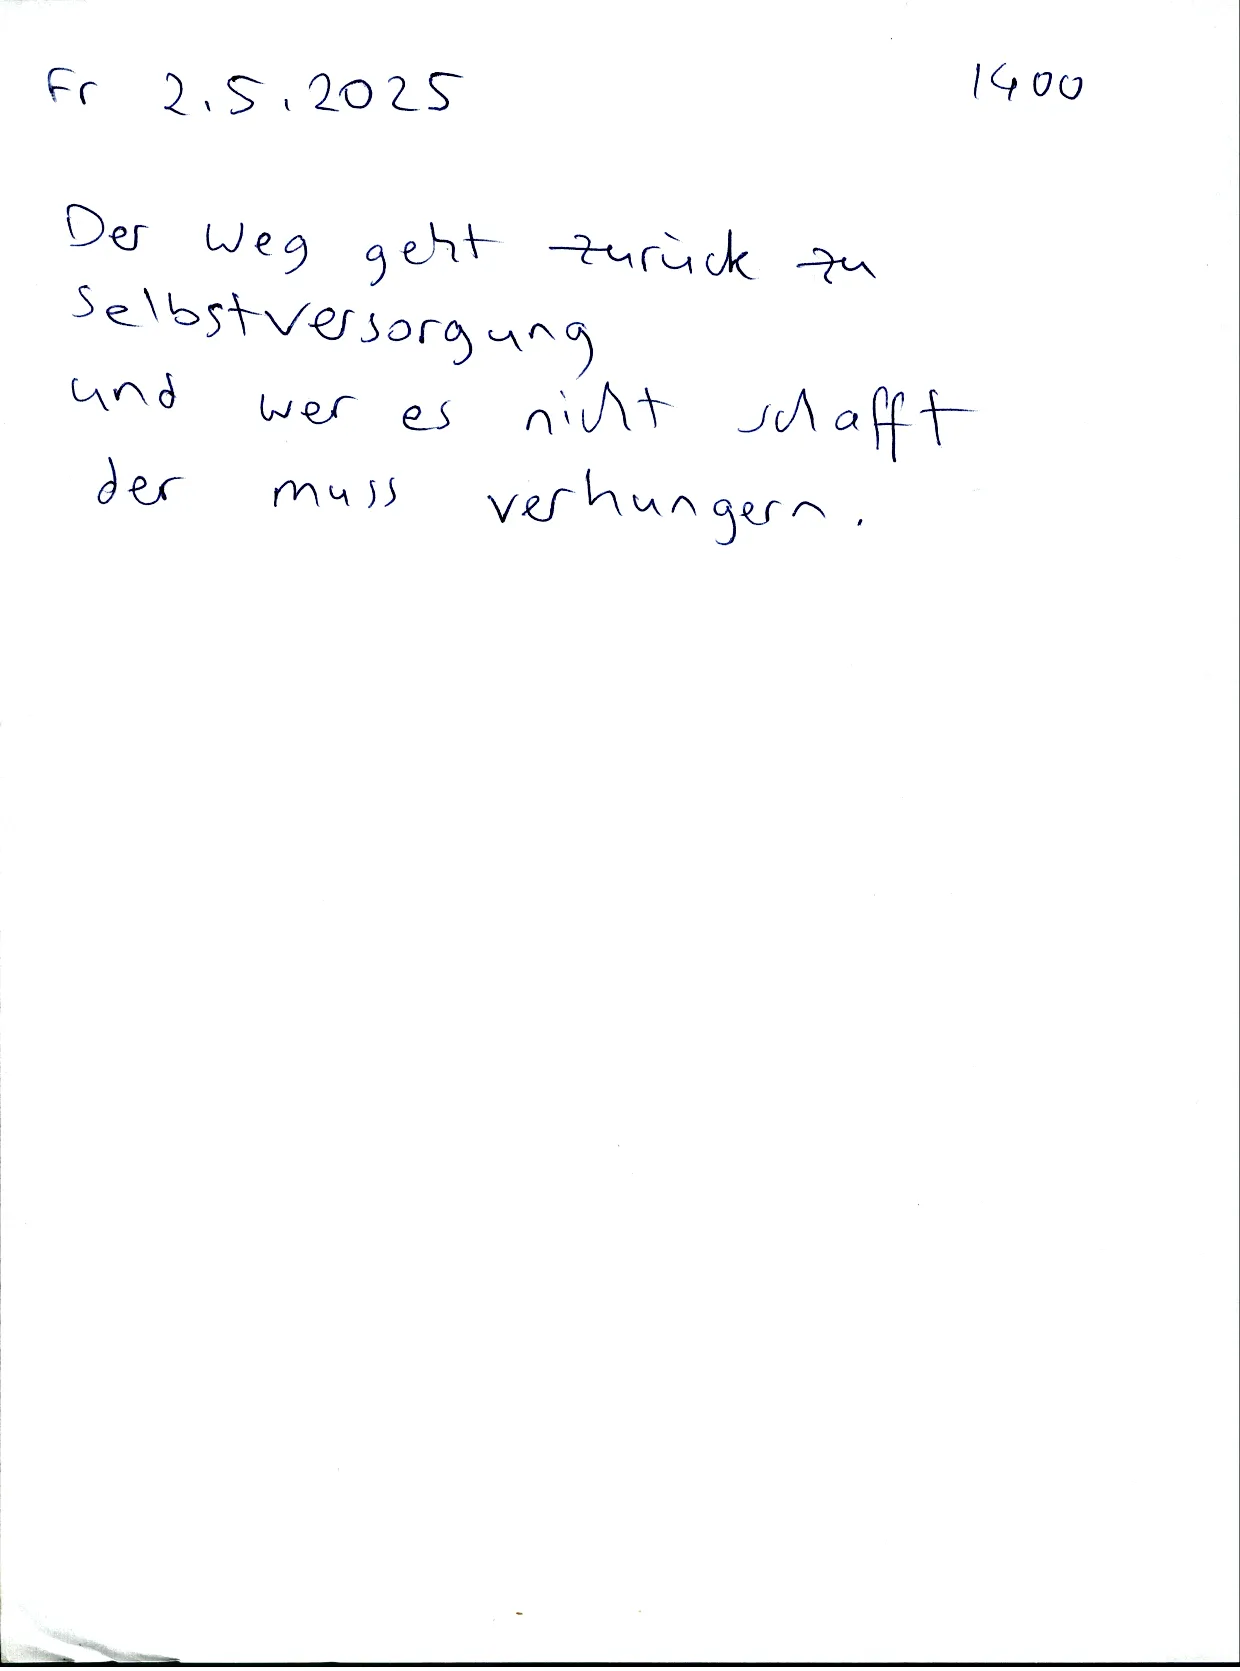 Fr 2.5.2025 1400
Der Weg geht zurück zu
Selbstversorgung
und wer es nicht schafft
der muss verhungern.